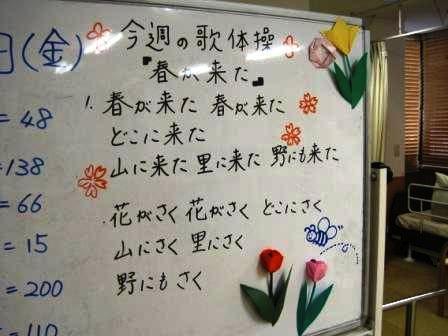 日(金)
= 48
=138
= 66
= 15
= 200
= 110
今週の歌体操
『春が来た』
1. 春が来た 春が来た
どこに来た
山に来た 里に来た 野にも来た
花がさく 花がさく どこにさく
山にさく 里にさく
野にもさく